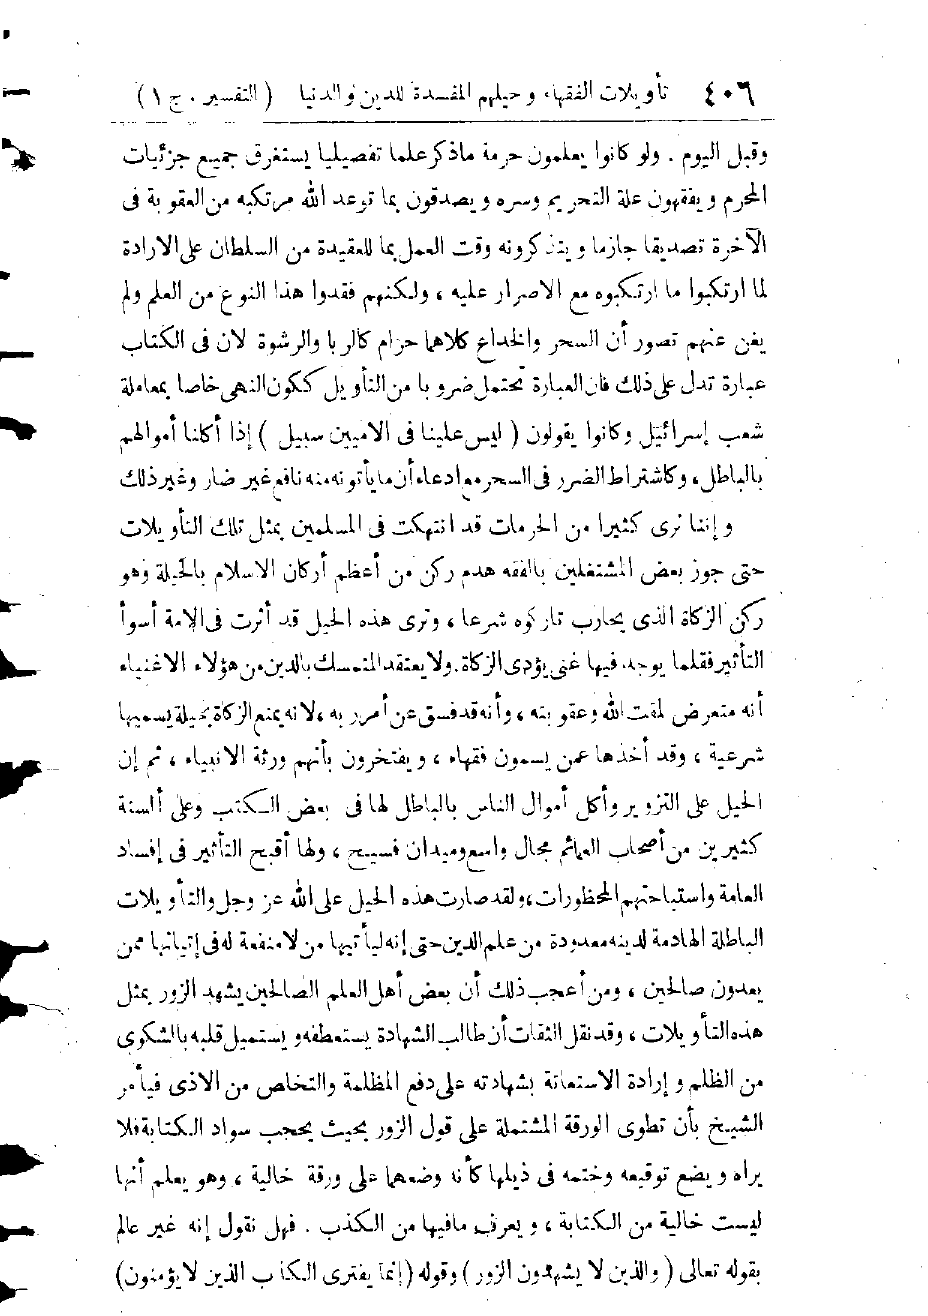 ٤٠٦ تأويلات الفقهاء وحيلهم المفسدة للدين والدنيا ( التفسير . ج ١ )
وقبل اليوم . ولو كانوا يعلمون حرمة ماذكر علما تفصيليا يستغرق جميع جزئيات
المحرم ويفقهون علة التحريم وسره ويصدقون بما توعد الله مرتكبه من العقوبة فى
الآخرة تصديقا جازما ويتذكرونه وقت العمل بما للعقيدة من السلطان على الارادة
لما ارتكبوا ما ارتكبوه مع الاصرار عليه ، ولكنهم فقدوا هذا النوع من العلم ولم
يغن عنهم تصور أن السحر والخداع كلاهما حرام كالربا والرشوة لان فى الكتاب
عبارة تدل على ذلك فان العبارة تحتمل ضروبا من التأويل ككون النهى خاصا بمعاملة
شعب إسرائيل وكانوا يقولون ( ليس علينا فى الاميين سبيل ) إذا أكلنا أموالهم
بالباطل، وكاشتراط الضرر فى السحر مع ادعاء أن ما يأتونه منه نافع غير ضار وغير ذلك
وإننا نرى كثيرا من الحرمات قد انتهكت فى المسلمين بمثل تلك التأويلات
حتى جوز بعض المشتغلين بالفقه هدم ركن من أعظم أركان الاسلام بالحيلة وهو
ركن الزكاة الذى يحارب تاركوه شرعا ، وترى هذه الحيل قد أثرت فى الامة أسوأ
التأثير فقلما يوجد فيها غنى يؤدى الزكاة. ولا يعتقد المتمسك بالدين من هؤلاء الاغنياء
أنه متعرض لمقت الله وعقوبته ، وأنه قد فسق عن أمر ربه ، لانه يمنع الزكاة بحيلة يسميها
شرعية ، وقد أخذها عمن يسمون فقهاء ، ويفتخرون بأنهم ورثة الانبياء ، ثم إن
الحيل على التزوير وأكل أموال الناس بالباطل لها فى بعض الكتب وعلى ألسنة
كثيرين من أصحاب العمائم مجال واسع وميدان فسيح ، ولها أقبح التأثير فى إفساد
العامة واستباحتهم المحظورات ، ولقد صارت هذه الحيل على الله عز وجل والتأويلات
الباطلة الهادمة لدينه معدودة من علم الدين حتى إنه ليأتيها من لا منفعة له فى إتيانها ممن
يعدون صالحين ، ومن أعجب ذلك أن بعض أهل العلم الصالحين يشهد الزور بمثل
هذه التأويلات ، وقد نقل الثقات أن طالب الشهادة يستعطفه ويستميل قلبه بالشكوى
من الظلم وإرادة الاستعانة بشهادته على دفع المظلمة والتخاص من الاذى فيأمر
الشيخ بأن تطوى الورقة المشتملة على قول الزور بحيث يحجب سواد الكتابة فلا
يراه ويضع توقيعه وختمه فى ذيلها كأنه وضعهما على ورقة خالية ، وهو يعلم أنها
ليست خالية من الكتابة ، ويعرف مافيها من الكذب . فهل نقول إنه غير عالم
بقوله تعالى ( والذين لا يشهدون الزور ) وقوله ( إنما يفترى الكذب الذين لا يؤمنون)